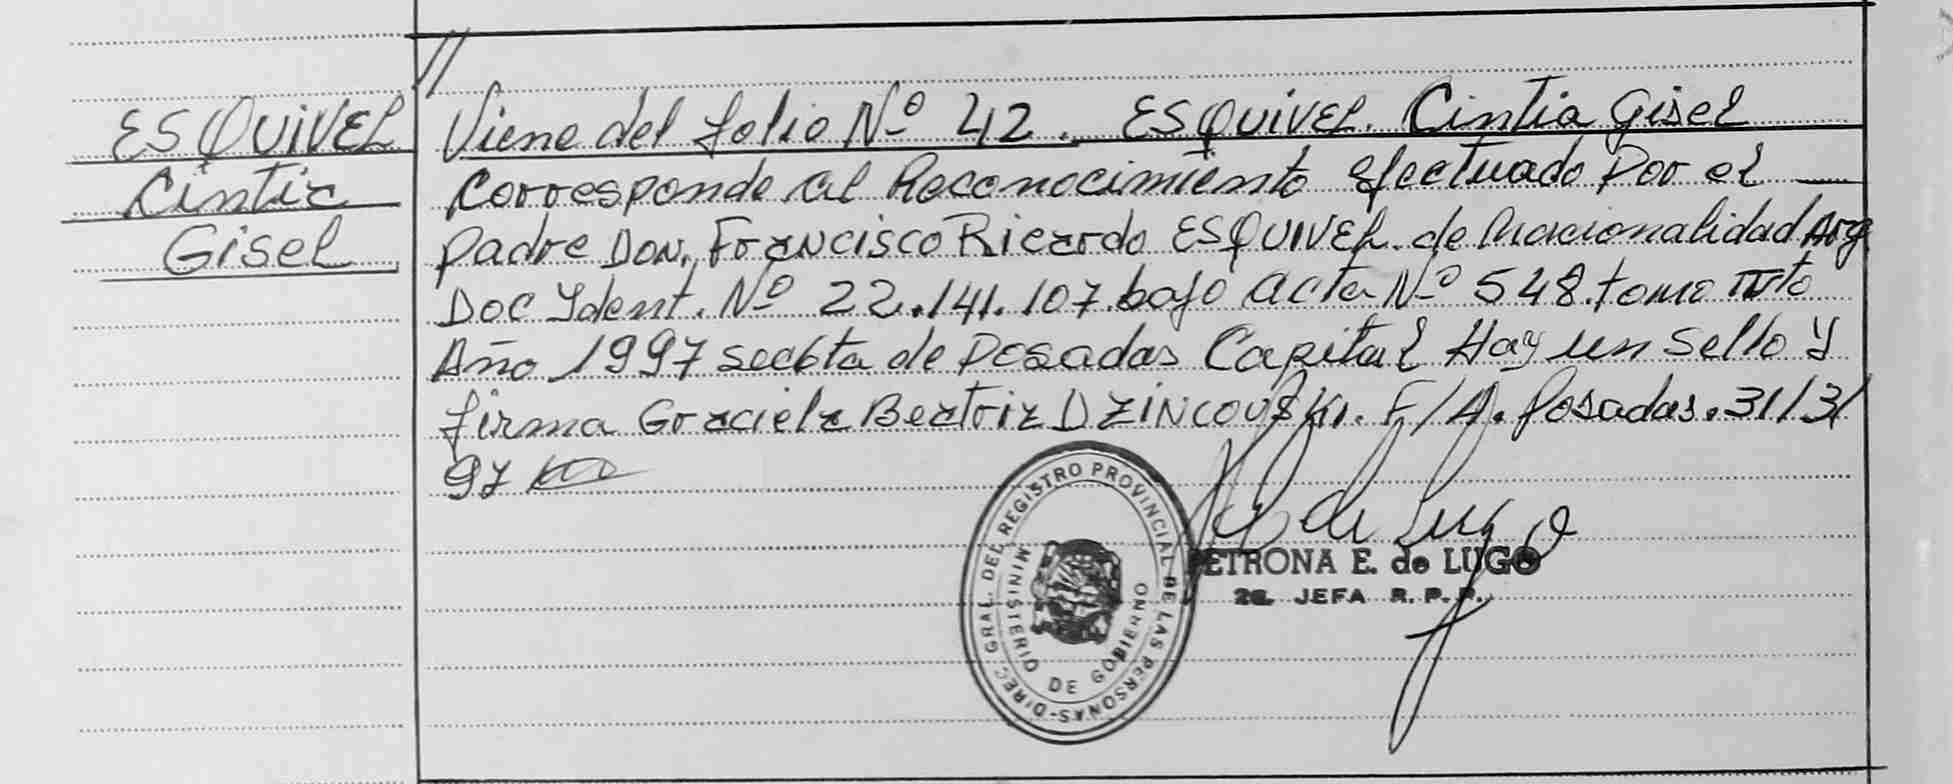 ESQUIVEL
Cintia
Gisel
// Viene del folio Nº 42. ESQUIVEL. Cintia Gisel
Corresponde al Reconocimiento efectuado Por el —
padre Don, Francisco Ricardo ESQUIVEL. de Nacionalidad Arg
Doc Ident. Nº 22.141.107. bajo acta Nº 548. tomo
Año 1997 de Posadas Capital Hay un Sello y
firma Graciela Beatriz DZINCOVSKI. F/A. Posadas. 31/3/
97
DIREC. GRAL. DEL REGISTRO PROVINCIAL DE LAS PERSONAS-
MINISTERIO DE GOBIERNO
de Lugo
PETRONA E. de LUGO
2a. JEFA R. P. P.